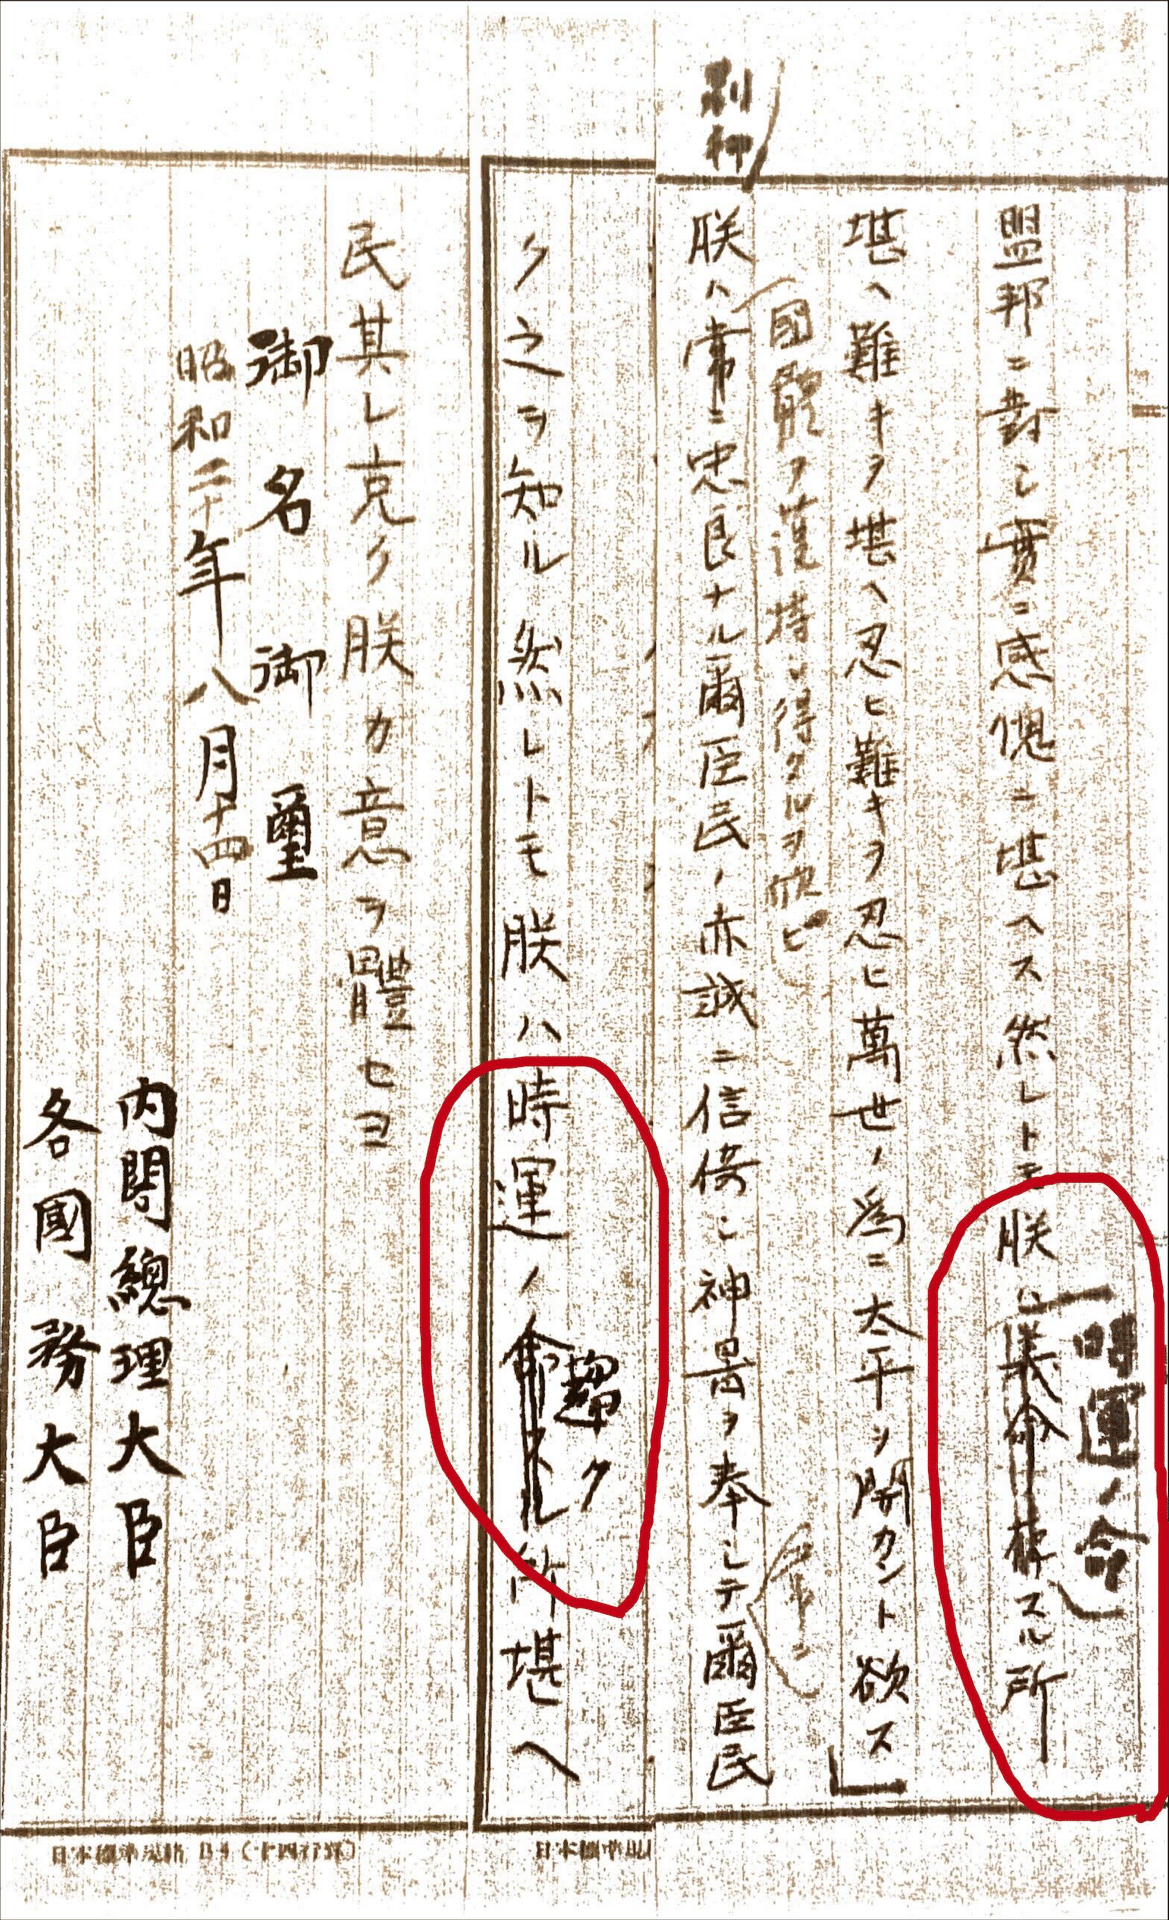 盟邦ニ對シ實ニ感愧ニ堪ヘス然レトモ朕ハ義命ノ存スル所
時運ノ命
堪ヘ難キヲ堪ヘ忍ヒ難キヲ忍ヒ萬世ノ爲ニ太平ヲ開カント欲ス」
國體ヲ護持シ得タルヲ欣ヒ
別冊
朕ハ常ニ忠良ナル爾臣民ノ赤誠ニ信倚シ神器ヲ奉シテ爾臣民
ク之ヲ知ル然レトモ朕ハ時運ノ命スル所堪ヘ
趨ク
民其レ克ク朕カ意ヲ體セヨ
御名御璽
昭和二十年八月十四日
内閣總理大臣
各國務大臣
日本標準規格B4(十四行罫)
日本標準規